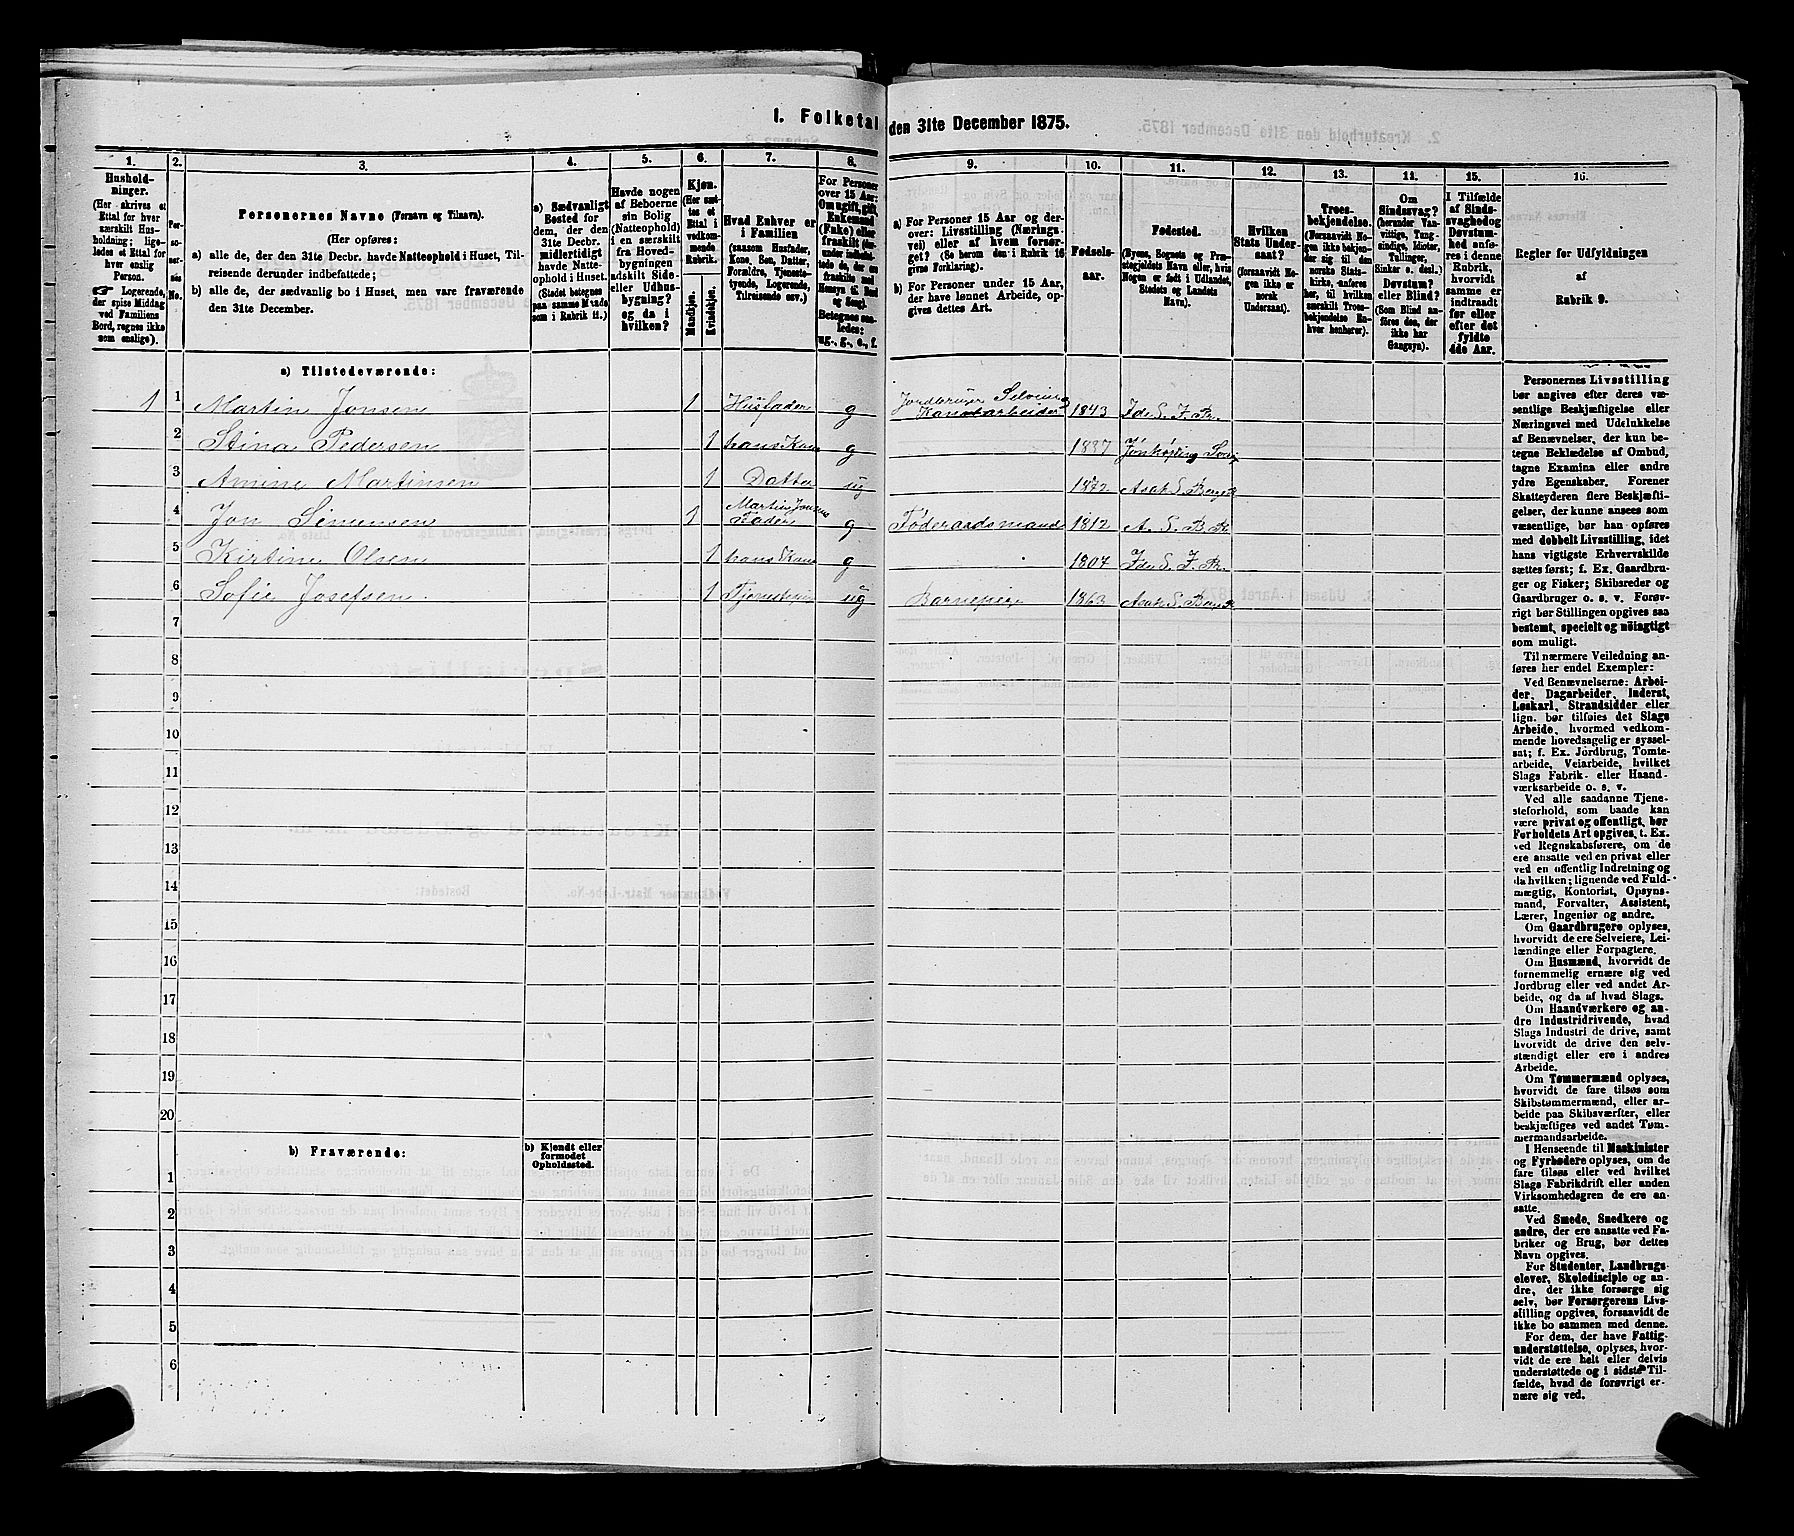 I. Folketal den 31te December 1875.
1. 2. 3. 4. 5. 6. 7. 8. 9. 10. 11. 12. 13. 14. 15. 16.
Hushold-
ninger.
(Her skrives et
Ettal for hver
særskilt Hus-
holdning; lige-
ledes et Ettal for
hver enslig
Person.
Logerende,
der spise Middag
ved Familiens
Bord, regnes ikke
som enslige).
Per-
so-
ner-
nes
No.
Personernes Navne (Fornavn og Tilnavn).
(Her opføres:
a) alle de, der den 31te Decbr. havde Natteophold i Huset, Til-
reisende derunder indbefattede;
b) alle de, der sædvanlig bo i Huset, men vare fraværende
den 31te December.
a) Sædvanligt
Bosted for
dem, der den
31te Decbr.
midlertidigt
havde Natte-
ophold i Huset.
(Stedet betegnes
paa samme Maade
som i Rubrik 11.)
Havde nogen
af Beboerne
sin Bolig
(Natteophold)
i en særskilt
fra Hoved-
bygningen
adskilt Side-
eller Udhus-
bygning?
og da i
hvilken?
Kjøn.
(Her sæt-
tes et
Ettal i
vedkom-
mende
Rubrik.
Mandkjøn.
Kvindekjøn.
Hvad Enhver er
i Familien
(saasom Husfader,
Kone, Søn, Datter,
Forældre, Tjeneste-
tyende, Logerende,
Tilreisende osv.)
For Personer
over 15 Aar:
Om ugift, gift,
Enkemand
(Enke) eller
fraskilt
Betegnes saa-
ledes:
ug., g., e., f.
a) For Personer 15 Aar og der-
over: Livsstilling (Nærings-
vei) eller af hvem forsør-
get? (Se herom den i Rubrik 16
givne Forklaring).
b) For Personer under 15 Aar,
der have lønnet Arbeide, op-
gives dettes Art.
Fødsels-
aar.
Fødested.
(Byens, Sognets og Præ-
stegjeldets Navn eller, hvis
Nogen er født i Udlandet,
Stedets og Landets
Navn.)
Hvilken
Stats Under-
saat?
(forsaavidt No-
gen ikke er
norsk
Undersaat).
Troes-
bekjendelse.
(Forsaavidt No-
gen ikke bekjen-
der sig til den
norske Stats-
kirke, anføres
her, til hvilken
særskilt Troes-
bekjendelse En-
hver henhører).
Om
Sindssvag?
(herunder Van-
vittige, Tung-
sindige, Idioter,
Tullinger,
Sinker o. desl.)
Døvstum?
eller Blind?
(Som Blind an-
føres den, der
ikke har
Gangsyn).
I Tilfælde
af Sinds-
svaghed og
Døvstum-
hed anfø-
res i denne
Rubrik,
hvorvidt
samme er
indtraadt
før eller
efter det
fyldte
4de Aar.
Regler for Udfyldningen
af
Rubrik 9.
a) Tilstedeværende:
1 1 Martin Jonsen 1 Husfader g Jordbruger Selveier Kanalarbeider 1843 Ide S. I. Pr.
2 Stina Pedersen 1 hans Kone g 1837 Jönköping
3 Amine Martinsen 1 Datter ug 1872 Asak S. Berg
4 Jon Simensen 1 Martin Jonsens Fader g Føderaadsmand 1812 A. S. B. Pr.
5 Kirtine Olsen 1 hans Kone g 1807 Ide S. I. Pr.
6 Sofie Josefsen 1 ug Barnepige 1863 Asak S. Berg
7
8
9
10
11
12
13
14
15
16
17
18
19
20
b) Fraværende:
b) Kjendt eller
formodet
Opholdssted.
1
2
3
4
5
6
Personernes Livsstilling
bør angives efter deres væ-
sentlige Beskjæftigelse eller
Næringsvei med Udelukkelse
af Benævnelser, der kun be-
tegne Beklædelse af Ombud,
tagne Examina eller andre
ydre Egenskaber. Forener
Skatteyderen flere Beskjæfti-
gelser, der kunne ansees som
væsentlige, bør han opføres
med dobbelt Livsstilling, idet
hans vigtigste Erhvervskilde
sættes først; f. Ex. Gaardbru-
ger og Fisker; Skibsreder og
Gaardbruger o. s. v. Forøv-
rigt bør Stillingen opgives saa
bestemt, specielt og nöiagtigt
som muligt.
Til nærmere Veiledning an-
føres her endel Exempler:
Ved Benævnelserne: Arbei-
der, Dagarbeider, Inderst,
Løskarl, Strandsidder eller
lign. bør tilføies det Slags
Arbeide, hvormed vedkom-
mende hovedsagelig er syssel-
sat; f. Ex. Jordbrug, Tomte-
arbeide, Veiarbeide, hvilket
Slags Fabrik- eller Haand-
værksarbeide o. s. v.
Ved alle saadanne Tjene-
steforhold, som baade kan
være privat og offentligt, bør
Forholdets Art opgives, t. Ex.
ved Regnskabsførere, om de
ere ansatte ved en privat eller
ved en offentlig Indretning og
da hvilken; lignende ved Fuld-
mægtig, Kontorist, Opsyns-
mand, Forvalter, Assistent,
Lærer, Ingeniør og andre.
Om Gaardbrugere oplyses,
hvorvidt de ere Selveiere, Lei-
lændinge eller Forpagtere.
Om Husmænd, hvorvidt de
fornemmelig ernære sig ved
Jordbrug eller ved andet Ar-
beide, og da af hvad Slags.
Om Haandværkere og an-
dre Industridrivende, hvad
Slags Industri de drive, samt
hvorvidt de drive den selv-
stændigt eller ere i andres
Arbeide.
Om Tømmermænd oplyses,
hvorvidt de fare tilsøs som
Skibstømmermænd, eller ar-
beide paa Skibsværfter, eller
beskjæftiges ved andet Tøm-
mermandsarbeide.
I Henseende til Maskinister
og Fyrbødere oplyses, om de
fare tilsøs eller ved hvilket
Slags Fabrikdrift eller anden
Virksomhedsgren de ere an-
satte.
Ved Smede, Snedkere og
andre, der ere ansatte ved Fa-
briker og Brug, bør dettes
Navn opgives.
For Studenter, Landbrugs-
elever, Skoledisciple og an-
dre, der ikke forsørge sig
selv, bør Forsørgerens Livs-
stilling opgives, forsaavidt de
ikke bo sammen med denne.
For dem, der have Fattig-
understøttelse, oplyses, hvor-
vidt de ere helt eller delvis
understøttede og i sidste Til-
fælde, hvad de forøvrigt er-
nære sig ved.